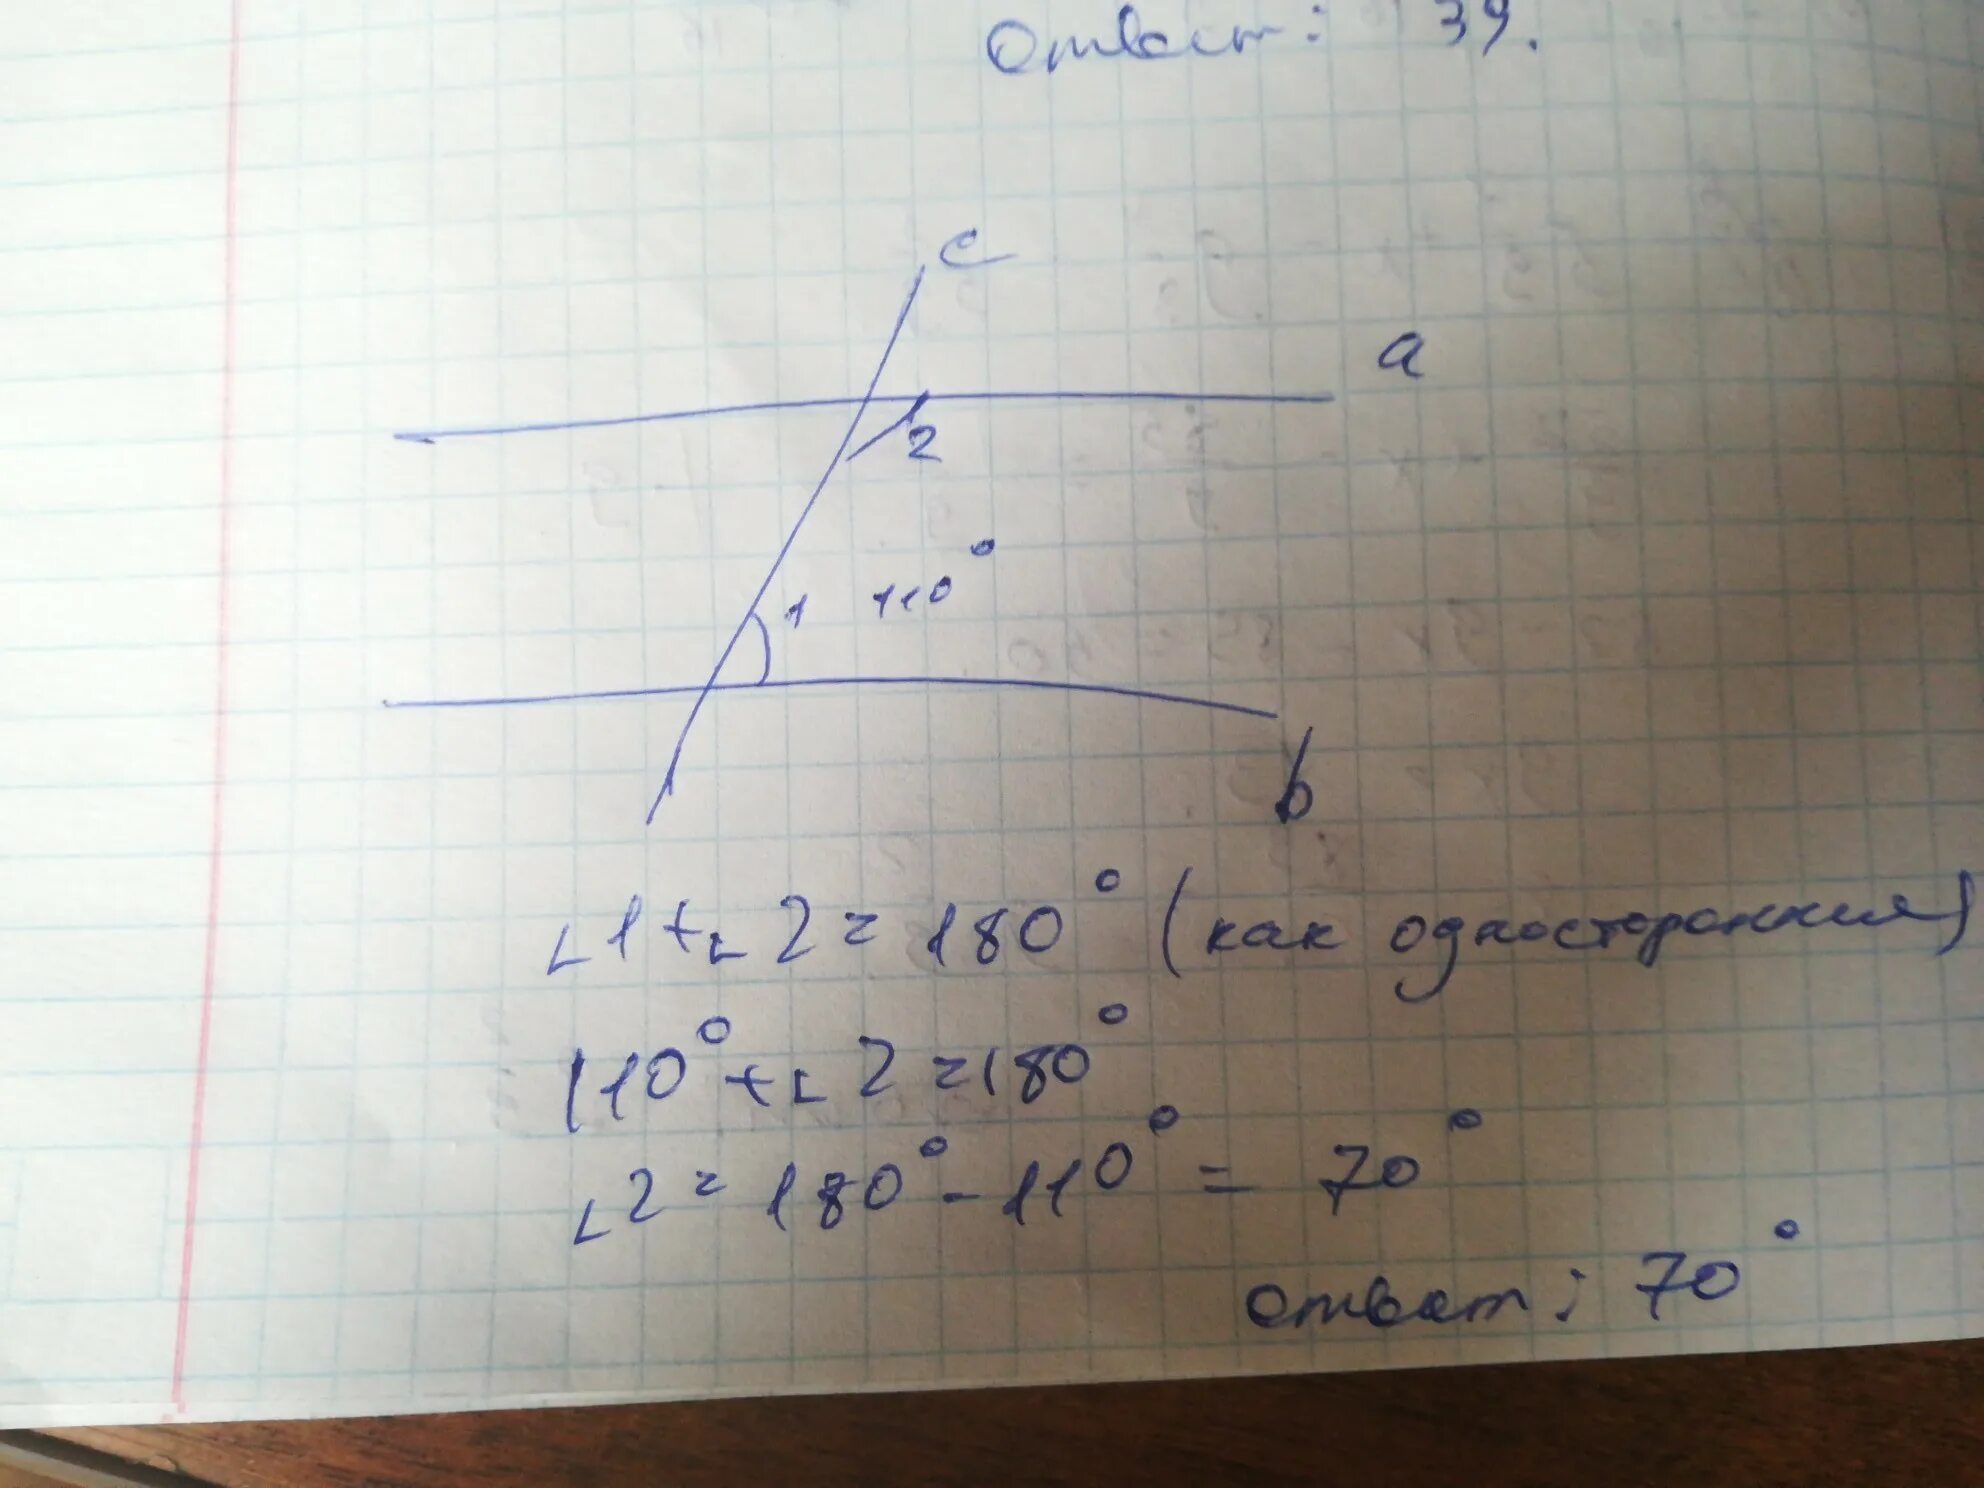 Ответ: 39.
c
a
2
1 110°
b
∟1+∟2=180° (как односторонние)
110°+∟2=180°
∟2=180°-110°=70°
ответ: 70°